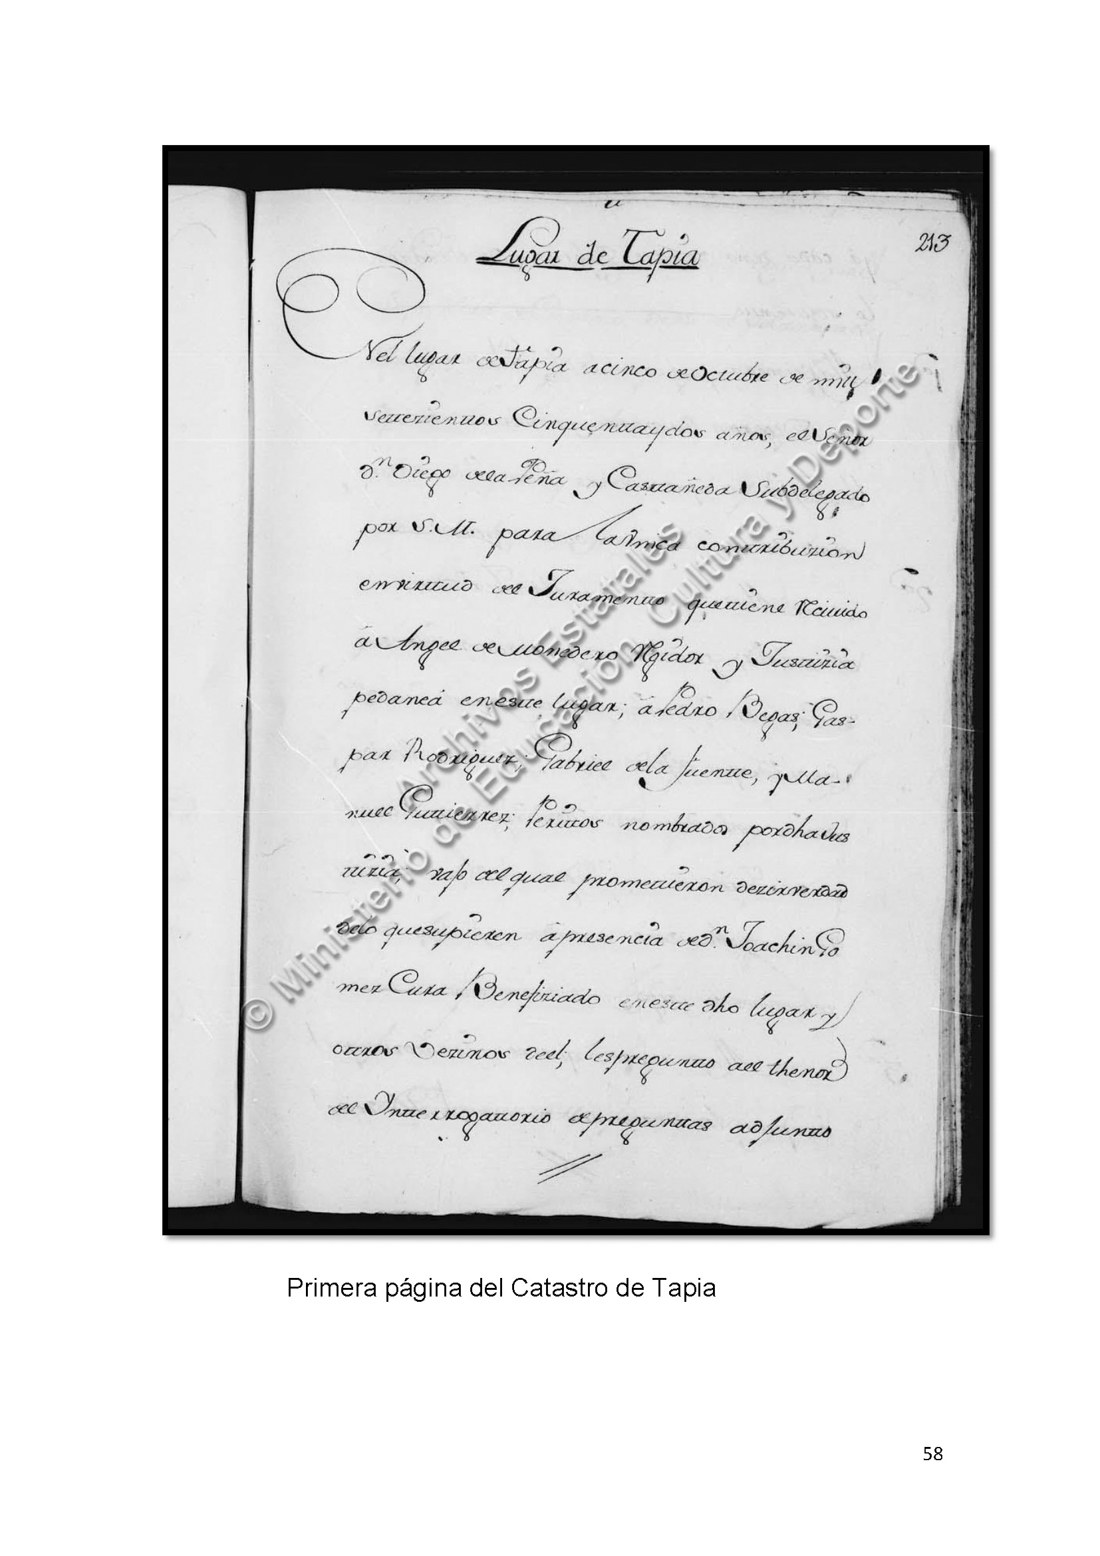 Lugar de Tapia
213
Nel lugar de Tapia a cinco de Octubre de mill
settezienttos Cinquenttaydos años, el Señor
Dn. Diego dela Peña y Casttañeda Subdelegado
por S.M. para la Unica conttribuzion
envirttud del Juramentto quettiene Rciuido
â Angel de Monedero Rgidor y Justtizia
pedanea enestte lugar; â Pedro Begas; Gas-
par Rodriguez; Gabriel dela fuentte, y Ma-
nuel Guttierrez; Perittos nombrados pordha Jus
ttizia, vajo del qual promettieron dezirverdad
delo quesupieren âpresencia de Dn. Joachin Go
mez Cura Benefiziado enestte dho lugar y
ottros Vezinos deel; lespregunto ael thenor
del Yntterrogattorio depregunttas adjuntto
© Ministerio de Educación, Cultura y Deporte
Archivos Estatales
Primera página del Catastro de Tapia
58